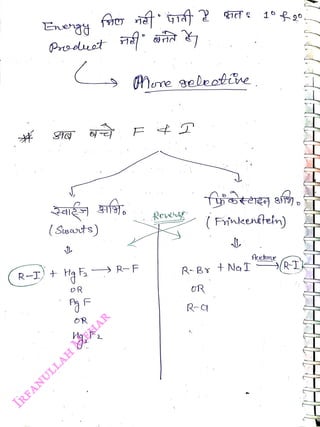 Energy मिल नहीं पाती है अतः 1° & 2°
Product नहीं बनते हैं।
More selective
* अब बचे F & I
स्वार्ट्ज अभि०
(Swarts)
Reverse
फिंकेस्टाइन अभि०
(Frinkenstein)
R-I + HgF2 → R-F
OR
AgF
OR
Hg2F2
R-Br + NaI Acetone → R-I
OR
R-Cl
IRFANULLAH MAZHAR